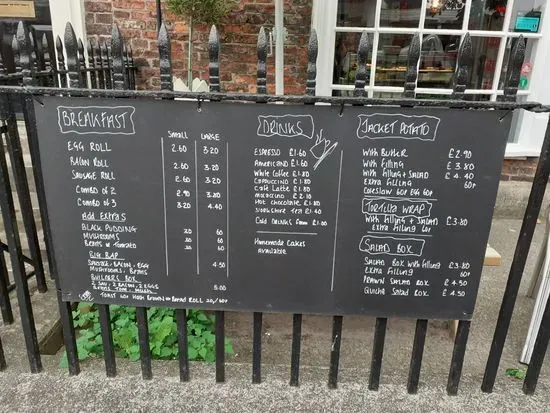 BREAKFAST
SMALL LARGE
EGG ROLL 2.60 3.20
BACON ROLL 2.60 3.20
SAUSAGE ROLL 2.60 3.20
COMBO OF 2 2.90 3.80
COMBO OF 3 3.20 4.40
Add Extra's
BLACK PUDDING 30 60
MUSHROOMS 30 60
BEANS or Tomato 30 60
BIG BAP
SAUSAGE, BACON, EGG 4.50
MUSHROOMS, BEANS
BUILDERS BOX
2 SAU, 2 BACON, 2 EGGS 5.00
BEANS, TOM, MUSH
TOAST HASH BROWN BREAD ROLL 20/60p
DRINKS
ESPRESSO £1.60
AMERICANO £1.60
White Coffee £1.80
CAPPUCCINO £1.80
CAFE LATTE £1.80
MOCACCINO £2.10
HOT CHOCOLATE £1.80
YORKSHIRE TEA £1.40
COLD DRINKS FROM £1.00
Homemade Cakes
AVAILABLE
JACKET POTATO
WITH BUTTER £2.90
WITH FILLING £3.80
WITH FILLING + SALAD £4.40
EXTRA FILLING 60p
COLESLOW 60p EGG 60p
TORTILLA WRAP
WITH FILLING + SALAD £3.80
EXTRA FILLING 60p
SALAD BOX
SALAD BOX WITH FILLING £3.80
EXTRA FILLING 60p
PRAWN SALAD BOX £4.50
QUICHE SALAD BOX £4.50